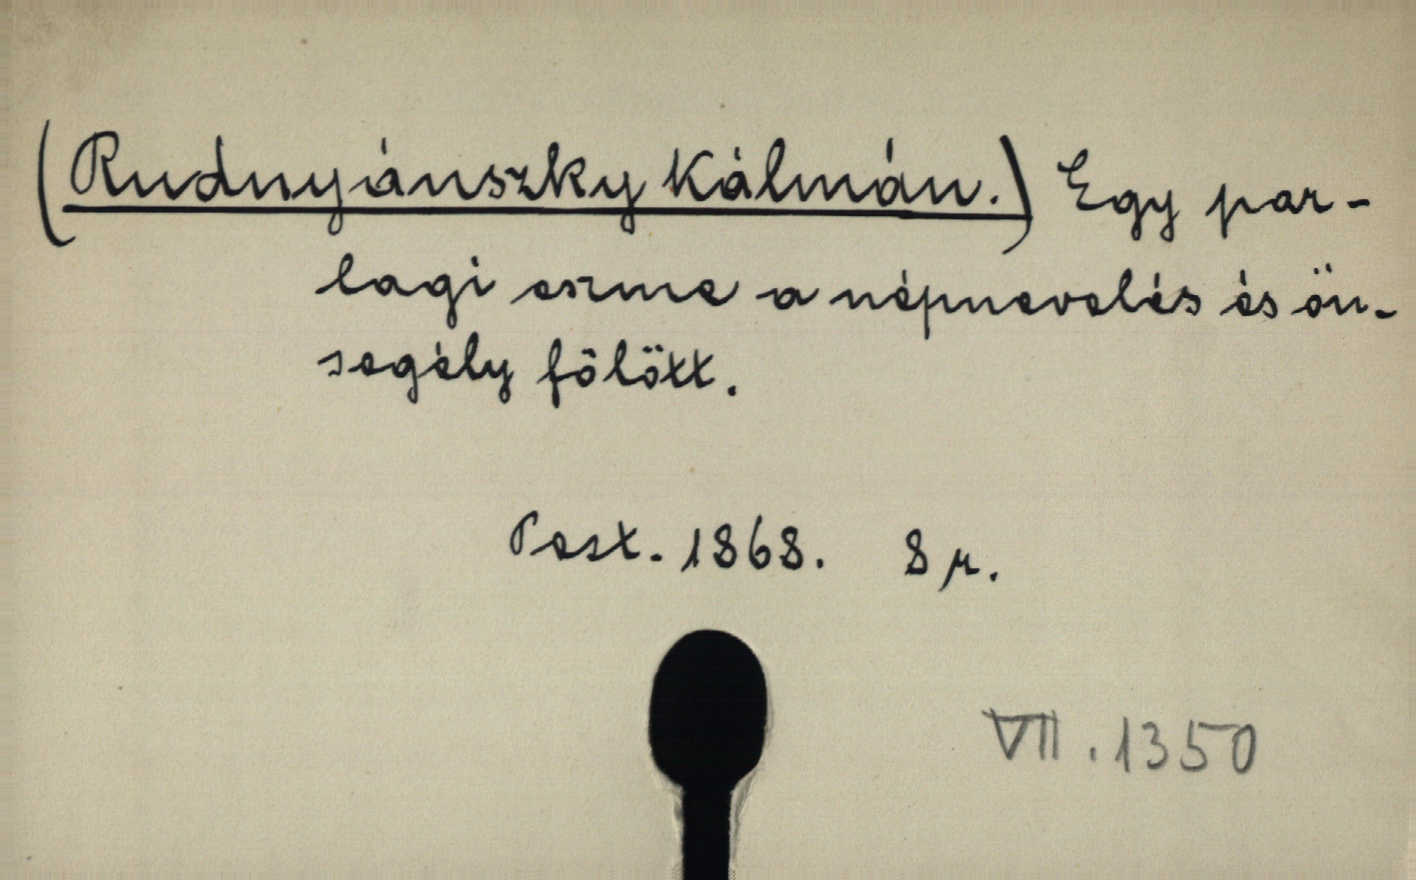 (Rudnyánszky Kálmán.) Egy par-
lagi eszme a népnevelés és ön-
segély fölött.
Pest. 1868. 8 r.
VII. 1350